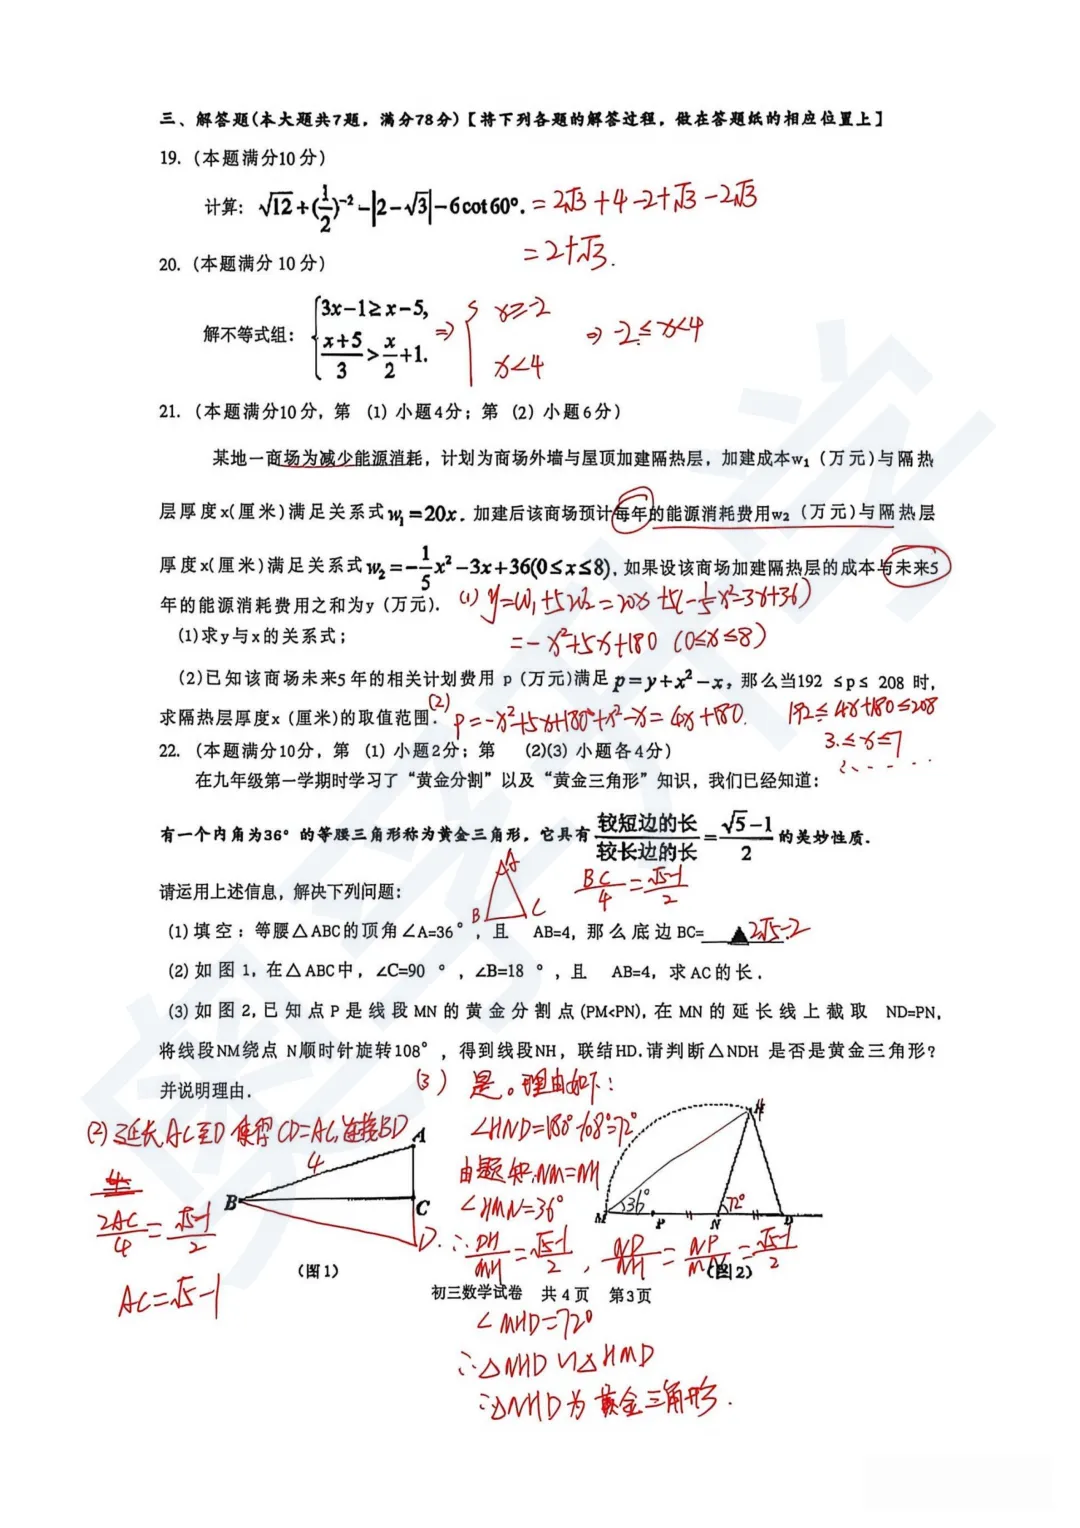 三、解答题(本大题共7题，满分78分)【将下列各题的解答过程，做在答题纸的相应位置上】
19. (本题满分10分)
计算: √12+(1/2)^-2-|2-√3|-6cot60°. =2√3+4-2+√3-2√3
=2+√3.
20. (本题满分 10 分)
解不等式组: { 3x-1≥x-5, (x+5)/3>x/2+1. ⇒ { x≥-2 x<4 ⇒ -2≤x<4
21. (本题满分10分，第 (1) 小题4分；第 (2) 小题6分)
某地一商场为减少能源消耗，计划为商场外墙与屋顶加建隔热层，加建成本w₁ (万元)与隔热
层厚度x(厘米)满足关系式w₁=20x. 加建后该商场预计每年的能源消耗费用w₂ (万元)与隔热层
厚度x(厘米)满足关系式w₂=-1/5x²-3x+36(0≤x≤8), 如果设该商场加建隔热层的成本与未来5
年的能源消耗费用之和为y (万元). (1) y=w₁+5w₂=20x+5(-1/5x²-3x+36)
(1)求y与x的关系式; =-x²+5x+180 (0≤x≤8)
(2)已知该商场未来5 年的相关计划费用 p (万元)满足 p=y+x²-x, 那么当192 ≤p≤ 208 时,
求隔热层厚度x (厘米)的取值范围. (2) p=-x²+5x+180+x²-x=4x+180. 192≤4x+180≤208
3≤x≤7
22. (本题满分10分，第 (1) 小题2分；第 (2)(3) 小题各4分)
在九年级第一学期时学习了“黄金分割”以及“黄金三角形”知识，我们已经知道:
有一个内角为36° 的等腰三角形称为黄金三角形，它具有 较短边的长/较长边的长=(√5-1)/2 的美妙性质.
请运用上述信息，解决下列问题: A B C BC/4=(√5-1)/2
(1) 填空: 等腰△ABC的顶角∠A=36°, 且 AB=4, 那么底边 BC= ▲ 2√5-2
(2) 如图1, 在△ABC中, ∠C=90 °, ∠B=18 °, 且 AB=4, 求AC的长.
(3) 如图2, 已知点P是线段MN的黄金分割点(PM<PN), 在MN的延长线上截取 ND=PN,
将线段NM绕点 N顺时针旋转108°, 得到线段NH, 联结HD.请判断△NDH 是否是黄金三角形?
并说明理由. (3) 是。理由如下:
(2) 延长AC至D 使得CD=AC,连接BD
2AC/4=(√5-1)/2
AC=√5-1
A 4 B C D
(图1)
∠HND=180°-108°=72°
由题知,NM=NH
∠HMN=36°
∴DH/MH=(√5-1)/2, ND/NH=NP/MN=(√5-1)/2
H 36° 72° M P N D
(图2)
初三数学试卷 共4页 第3页
∠MHD=72°
∴△NHD∽△HMD
∴△NHD为黄金三角形.
奥孚升学